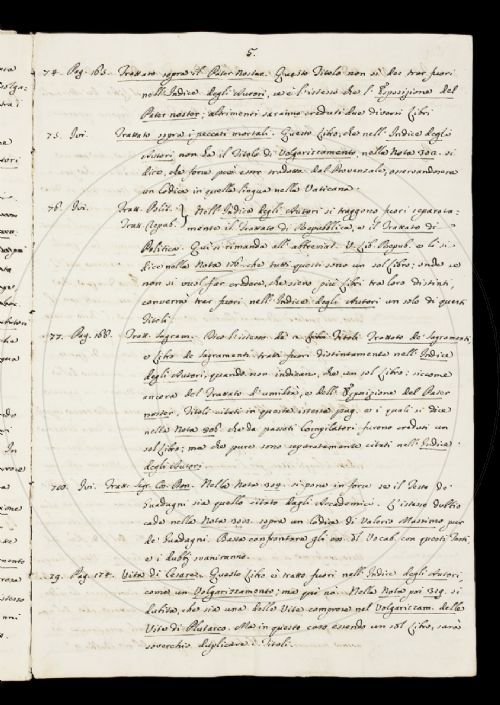 5.
74. Pag. 165. Trattato sopra il Pater Nostro. Questo Titolo non si dee trar fuori
nell'Indice degli Autori, se è l'istesso che l'Esposizione del
Pater nostor; altrimenti saranno creduti due diversi Libri
75. Ivi. Trattato sopra i peccati mortali. Questo Libro, che nell'Indice degli
Autori non ha il Titolo di Volgarizzamento, nella Nota 302. si
dice, che forse può esser tradotto dal Provenzale, osservandosene
un Codice in quella lingua nella Vaticana.
76. Ivi. Tratt. Polit. } Nell'Indice degli Autori si traggono fuori separata-
Tratt. Repub. } mente il Trattato di Repubblica, e il Trattato di
Politica. Qui si rimanda all'abbreviat. V. Lib. Repub. e lì si
dice nella Nota 176. che tutti questi sono un sol libro: onde se
non si vuol far credere, che sieno più Libri tra loro distinti,
converrà trar fuori nell'Indice degli Autori un solo di questi
Titoli.
77. Pag. 166. Tratt. Sagram. Dico l'istesso de' Titoli Trattato de' Sagramenti,
e Libro de Sagramenti, tratti fuori distintamente nell'Indice
degli Autori, quando non indicano, che un sol Libro: siccome
ancora del Trattato d'umiltà, e dell'Esposizione del Pater
noster, Titoli citati in questa istessa pag. e i quali si dice
nella Nota 306. che da' passati Compilatori furono creduti un
sol Libro; ma che pure sono separatamente citati nell'Indice
degli Autori.
Ivi. Tratt. Segr. Cos. Don. Nella Nota 309. si pone in forse se il Testo de'
Guadagni sia quello citato dagli Accademici. L'istesso dubbio
cade nella Nota 320. sopra un Codice di Valerio Massimo pur
de' Guadagni. Basta confrontare gli es. del Vocab. con questi Testi,
e i dubbj svaniranno.
79. Pag. 174. Vita di Cesare. Questo Libro è tratto fuori nell'Indice degli Autori,
come un Volgarizzamento; ma qui no. Nella Nota poi 329. si
dubita, che sia una delle Vite comprese nel Volgarizzam. delle
Vite di Plutarco. Ma in questo caso essendo un sol Libro, sarà
soverchio duplicare i Titoli.